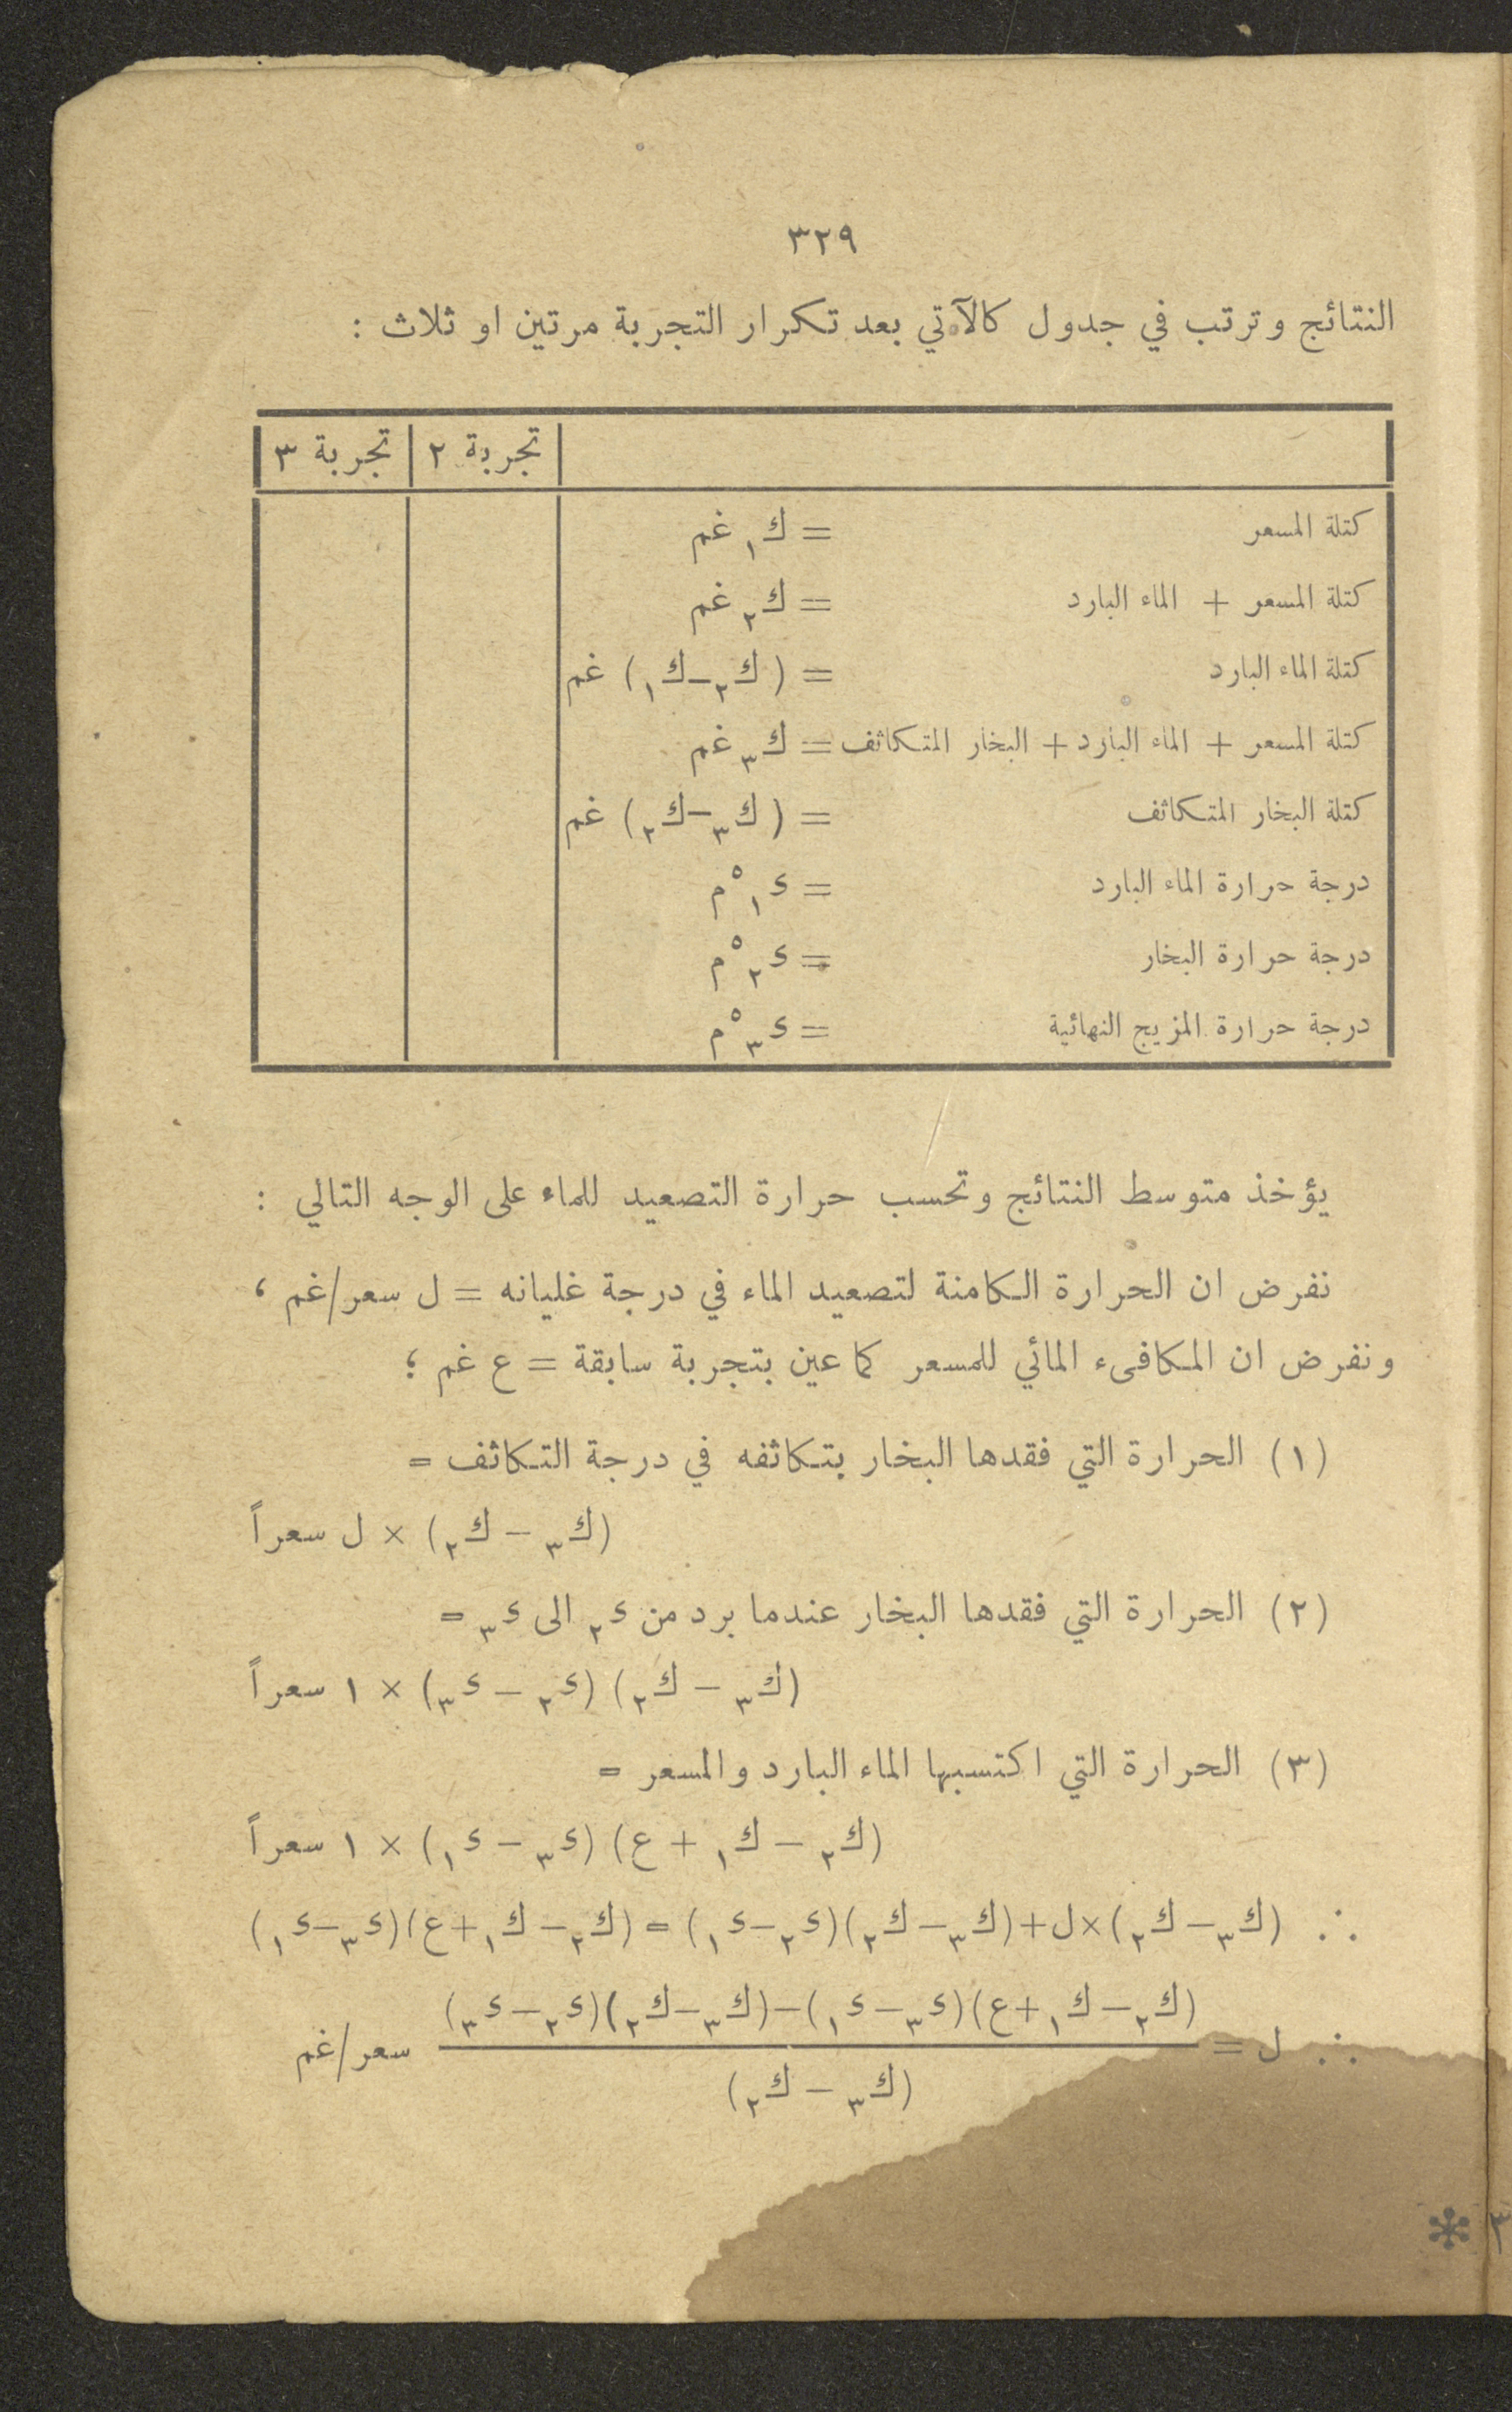 ٣٢٩
النتائج وترتب في جدول كالآتي بعد تكرار التجربة مرتين او ثلاث :
تجربة ٢ تجربة ٣
كتلة المسعر = ك١ غم
كتلة المسعر + الماء البارد = ك٢ غم
كتلة الماء البارد = (ك٢–ك١) غم
كتلة المسعر + الماء البارد + البخار المتكاثف = ك٣ غم
كتلة البخار المتكاثف = (ك٣–ك٢) غم
درجة حرارة الماء البارد = د١ °م
درجة حرارة البخار = د٢ °م
درجة حرارة المزيج النهائية = د٣ °م
يؤخذ متوسط النتائج وتحسب حرارة التصعيد للماء على الوجه التالي :
نفرض ان الحرارة الكامنة لتصعيد الماء في درجة غليانه = ل سعر/غم ،
ونفرض ان المكافىء المائي للمسعر كما عين بتجربة سابقة = ع غم ؛
(١) الحرارة التي فقدها البخار بتكاثفه في درجة التكاثف =
(ك٣ – ك٢) × ل سعراً
(٢) الحرارة التي فقدها البخار عندما برد من د٢ الى د٣ =
(ك٣ – ك٢) (د٢ – د٣) × ١ سعراً
(٣) الحرارة التي اكتسبها الماء البارد والمسعر =
(ك٢ – ك١ + ع) (د٣ – د١) × ١ سعراً
∴ (ك٣ – ك٢)×ل+(ك٣–ك٢)(د٢–د١) = (ك٢–ك١+ع)(د٣–د١)
(ك٢–ك١+ع)(د٣–د١)–(ك٣–ك٢)(د٢–د٣)
∴ ل = سعر/غم
(ك٣ – ك٢)
* ٣